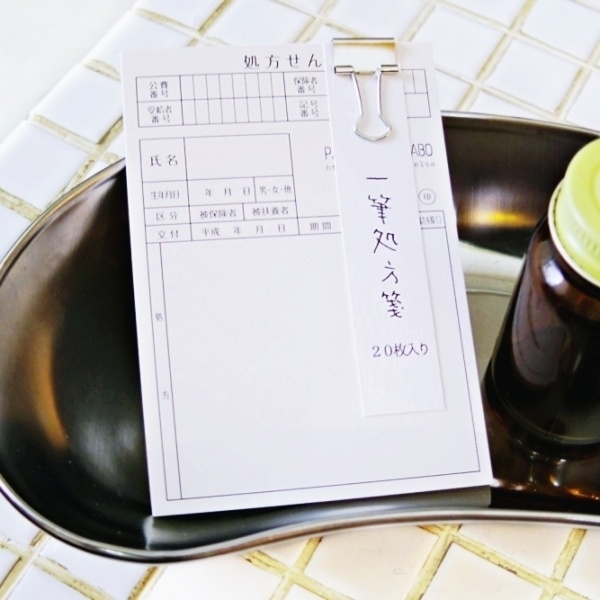 処方せん
公費番号 保険者番号
受給者番号 記号番号
氏名
ABO
生年月日 年 月 日 男・女・他
区分 被保険者 被扶養者
交付 平成 年 月 日 期間
印
処方
一筆処方箋
20枚入り